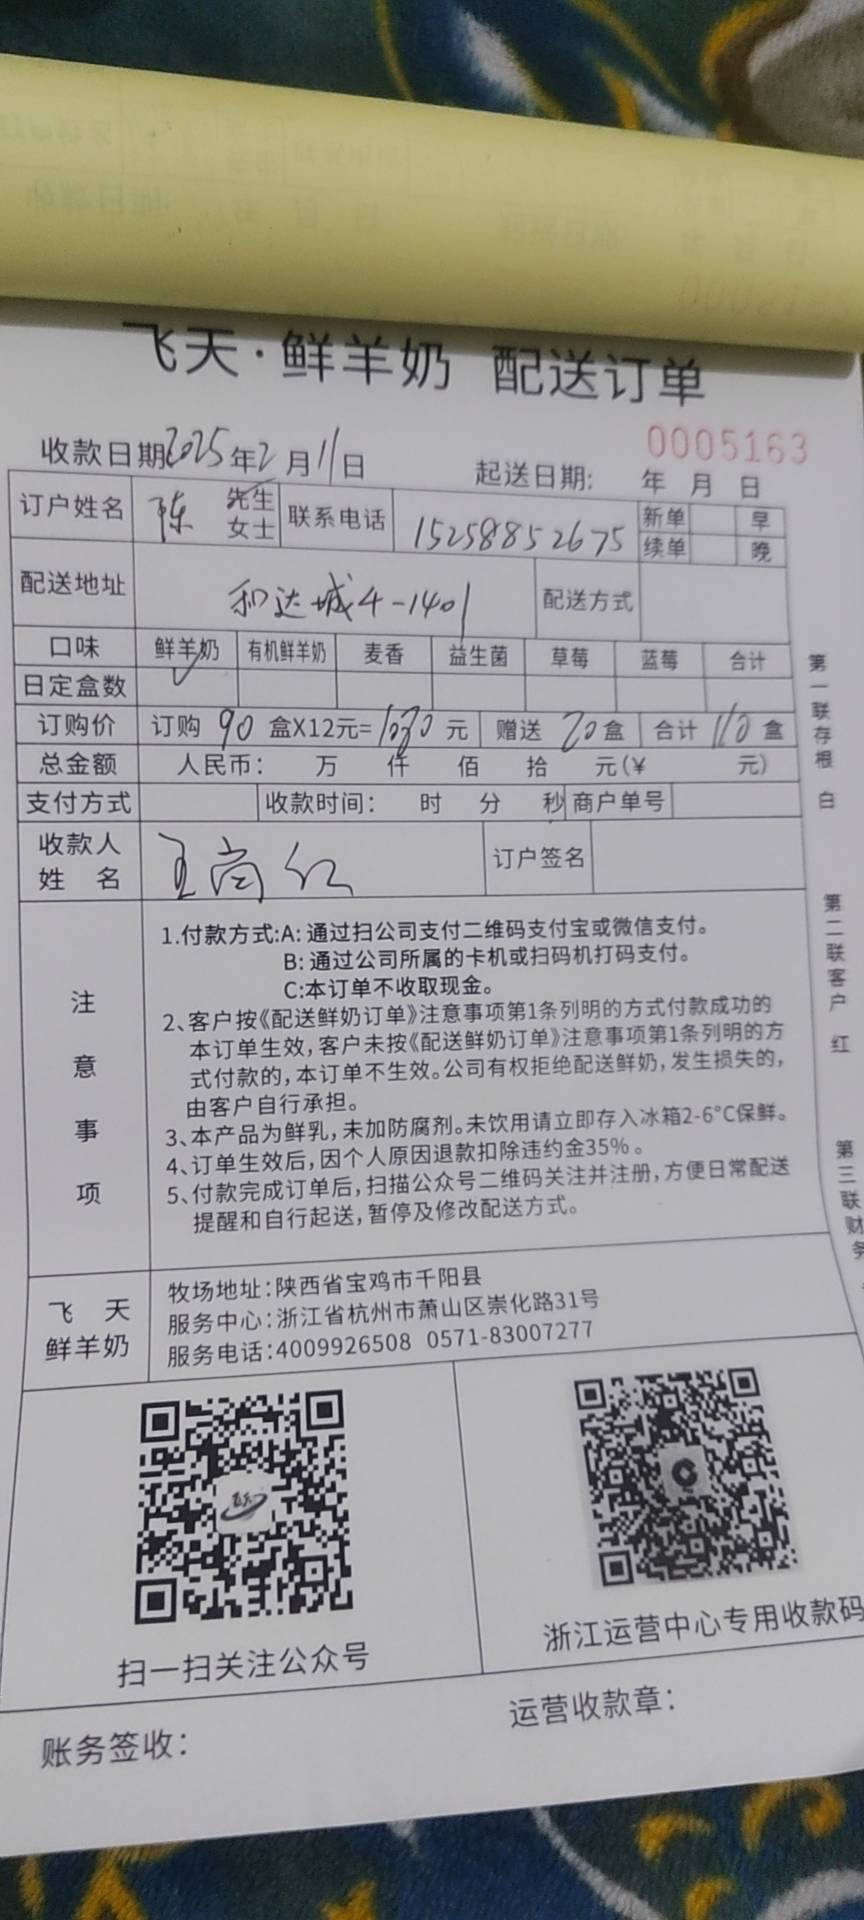 飞天·鲜羊奶 配送订单
0005163
收款日期2025年2月11日 起送日期: 年 月 日
订户姓名 陈 先生 女士 联系电话 15258852675 新单 早 续单 晚
配送地址 和达城4-1401 配送方式
口味 鲜羊奶 有机鲜羊奶 麦香 益生菌 草莓 蓝莓 合计
日定盒数 ✓
订购价 订购 90 盒X12元=1080元 赠送 20盒 合计 110盒
总金额 人民币: 万 仟 佰 拾 元(¥ 元)
支付方式 收款时间: 时 分 秒 商户单号
收款人姓名 王尚红 订户签名
注意事项
1.付款方式:A: 通过扫公司支付二维码支付宝或微信支付。
B: 通过公司所属的卡机或扫码机打码支付。
C:本订单不收取现金。
2、客户按《配送鲜奶订单》注意事项第1条列明的方式付款成功的
本订单生效,客户未按《配送鲜奶订单》注意事项第1条列明的方
式付款的,本订单不生效。公司有权拒绝配送鲜奶,发生损失的,
由客户自行承担。
3、本产品为鲜乳,未加防腐剂。未饮用请立即存入冰箱2-6°C保鲜。
4、订单生效后,因个人原因退款扣除违约金35%。
5、付款完成订单后,扫描公众号二维码关注并注册,方便日常配送
提醒和自行起送,暂停及修改配送方式。
飞天
鲜羊奶
牧场地址:陕西省宝鸡市千阳县
服务中心:浙江省杭州市萧山区崇化路31号
服务电话:4009926508 0571-83007277
扫一扫关注公众号
浙江运营中心专用收款码
账务签收:
运营收款章:
第一联存根 白
第二联客户 红
第三联财务